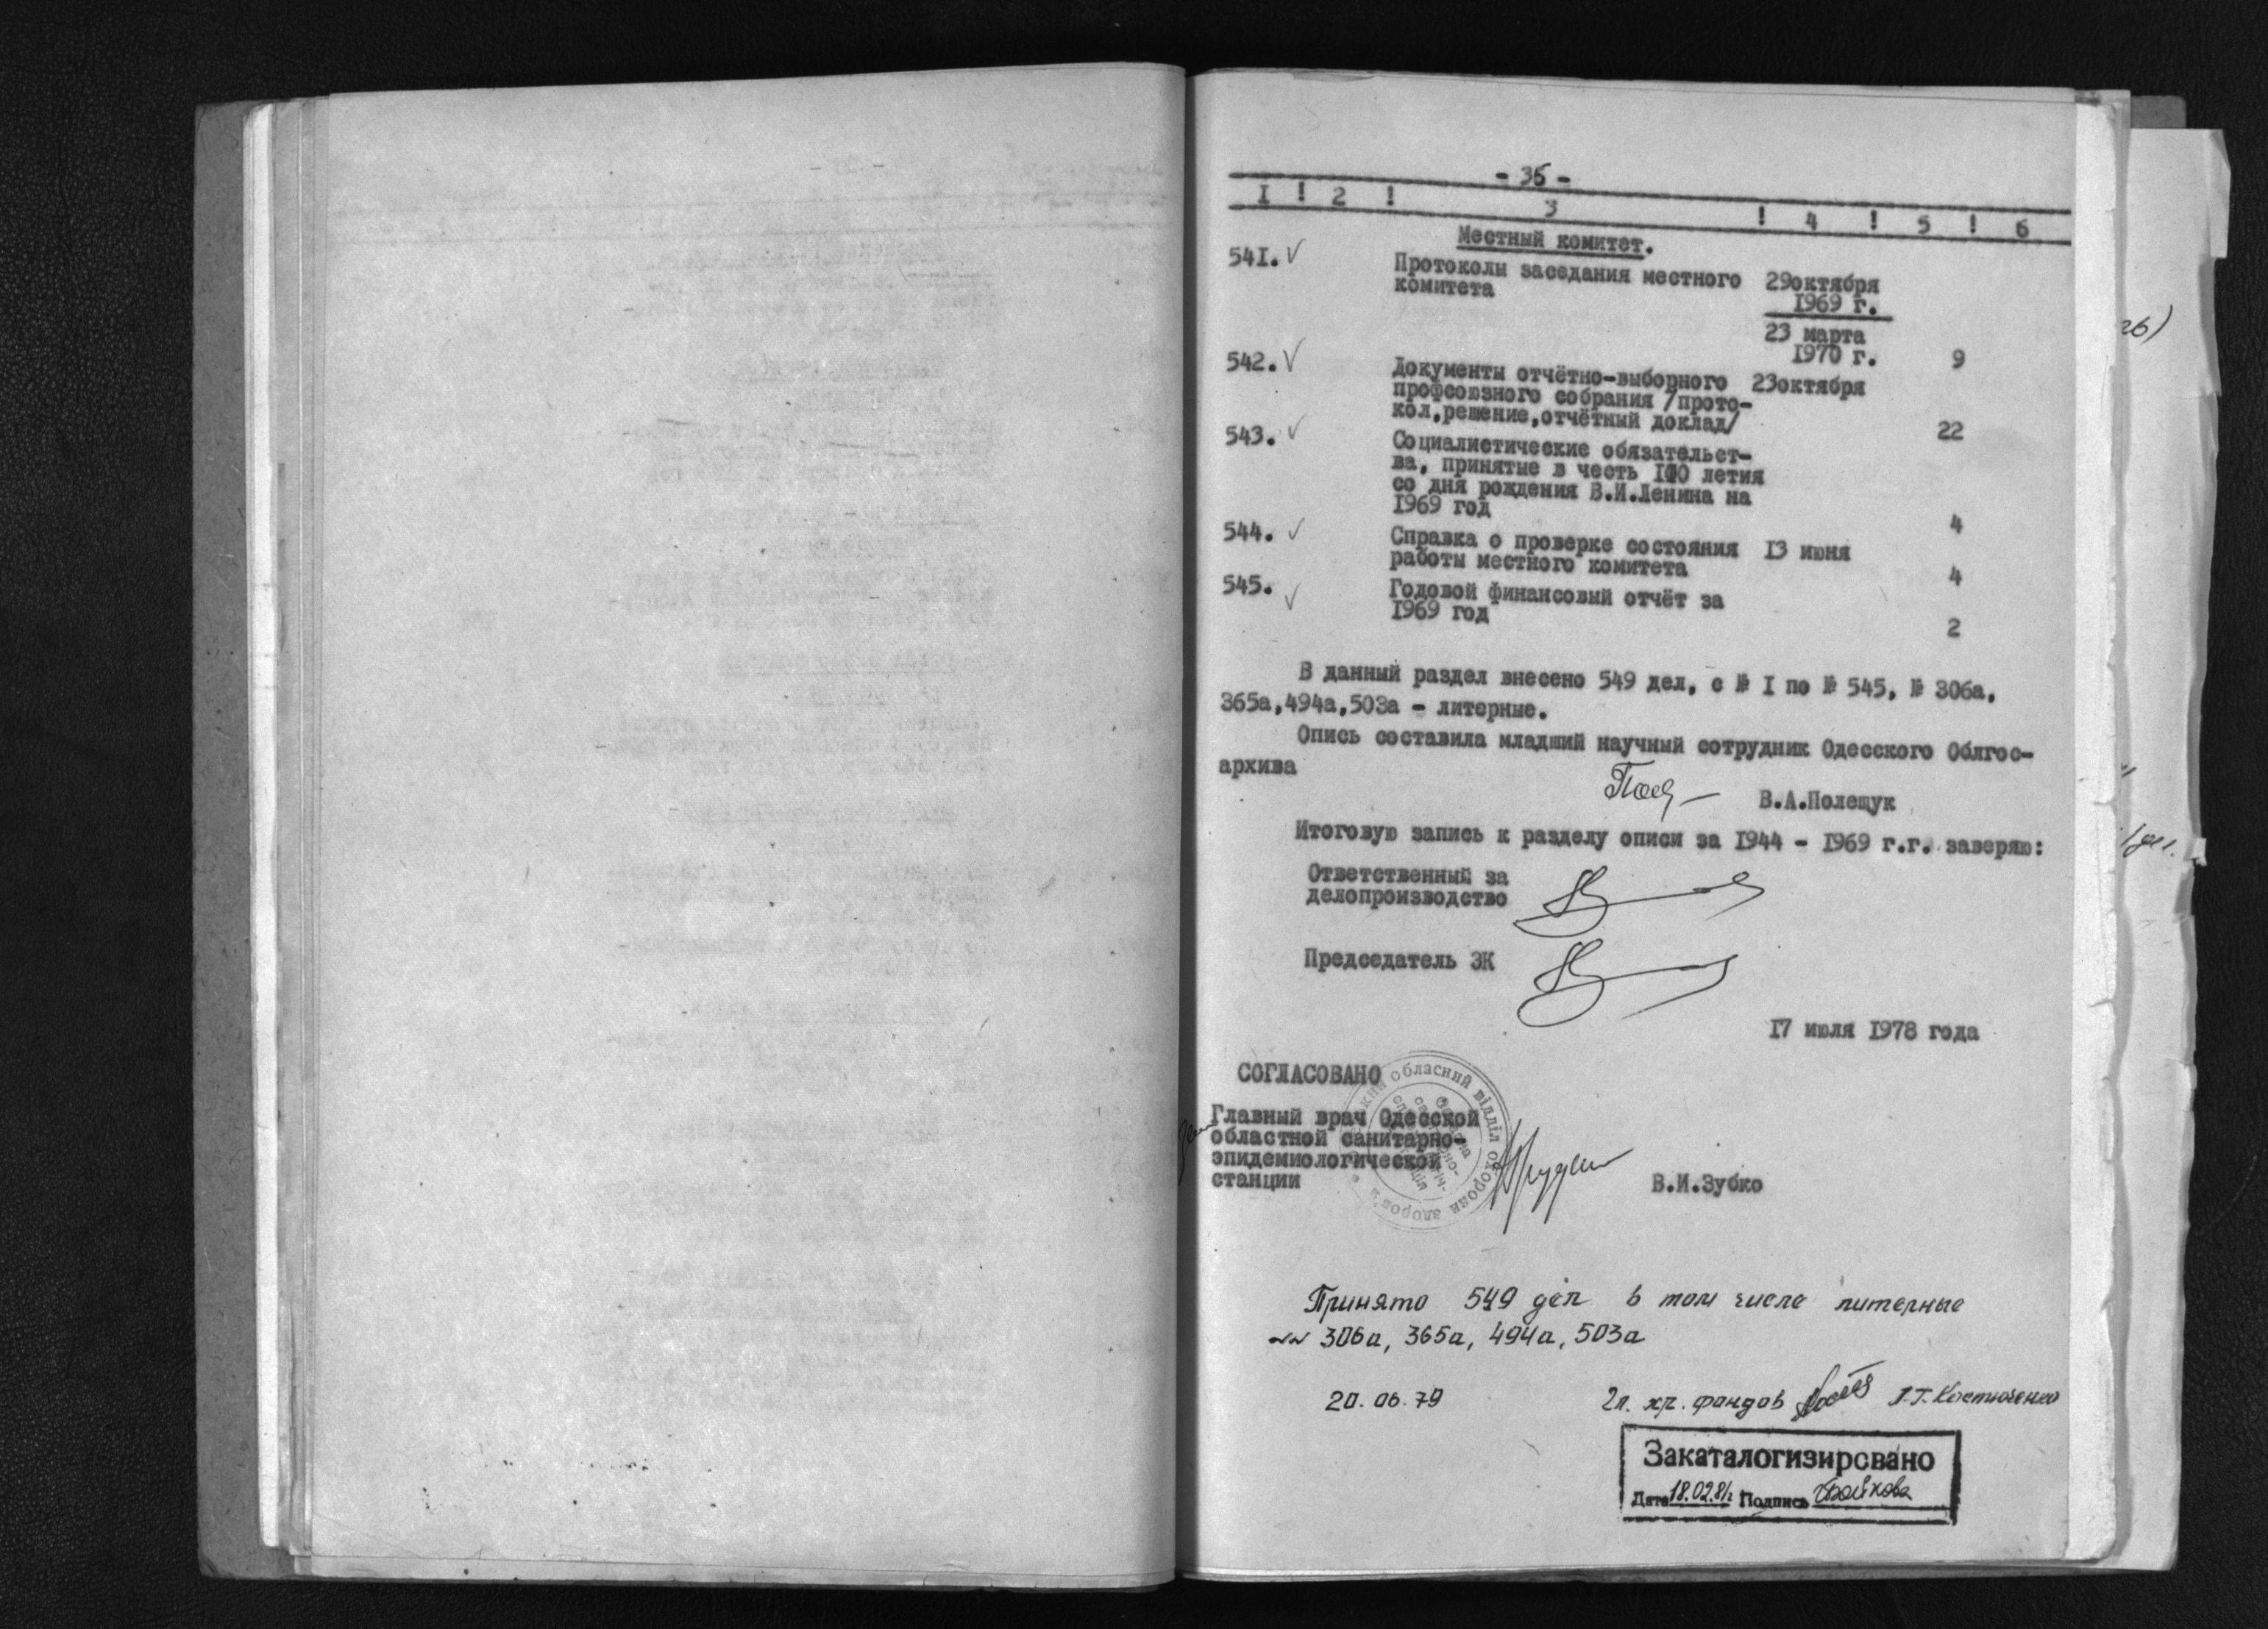 - 36 -
I ! 2 ! 3 ! 4 ! 5 ! 6
Местный комитет.
541. Протоколы заседания местного 29октября
комитета 1969 г.
23 марта
1970 г. 9
542. Документы отчётно-выборного 23октября
профсоюзного собрания /прото-
кол,решение,отчётный доклад/ 22
543. Социалистические обязательст-
ва, принятые в честь 100 летия
со дня рождения В.И.Ленина на
1969 год 4
544. Справка о проверке состояния 13 июня
работы местного комитета 4
545. Годовой финансовый отчёт за
1969 год 2
В данный раздел внесено 549 дел, с № I по № 545, № 306а,
365а,494а,503а - литерные.
Опись составила младший научный сотрудник Одесского Облгос-
архива
В.А.Полещук
Итоговую запись к разделу описи за 1944 - 1969 г.г. заверяю:
Ответственный за
делопроизводство
Председатель ЭК
17 июля 1978 года
СОГЛАСОВАНО
обласний відділ охорони здоров'я
Главный врач Одесской
областной санитарно-
эпидемиологической
станции В.И.Зубко
Принято 549 дел в том числе литерные
№№ 306а, 365а, 494а, 503а
20.06.79 Гл. хр. фондов Костюченко
Закаталогизировано
Дата 18.02.81г Подпись